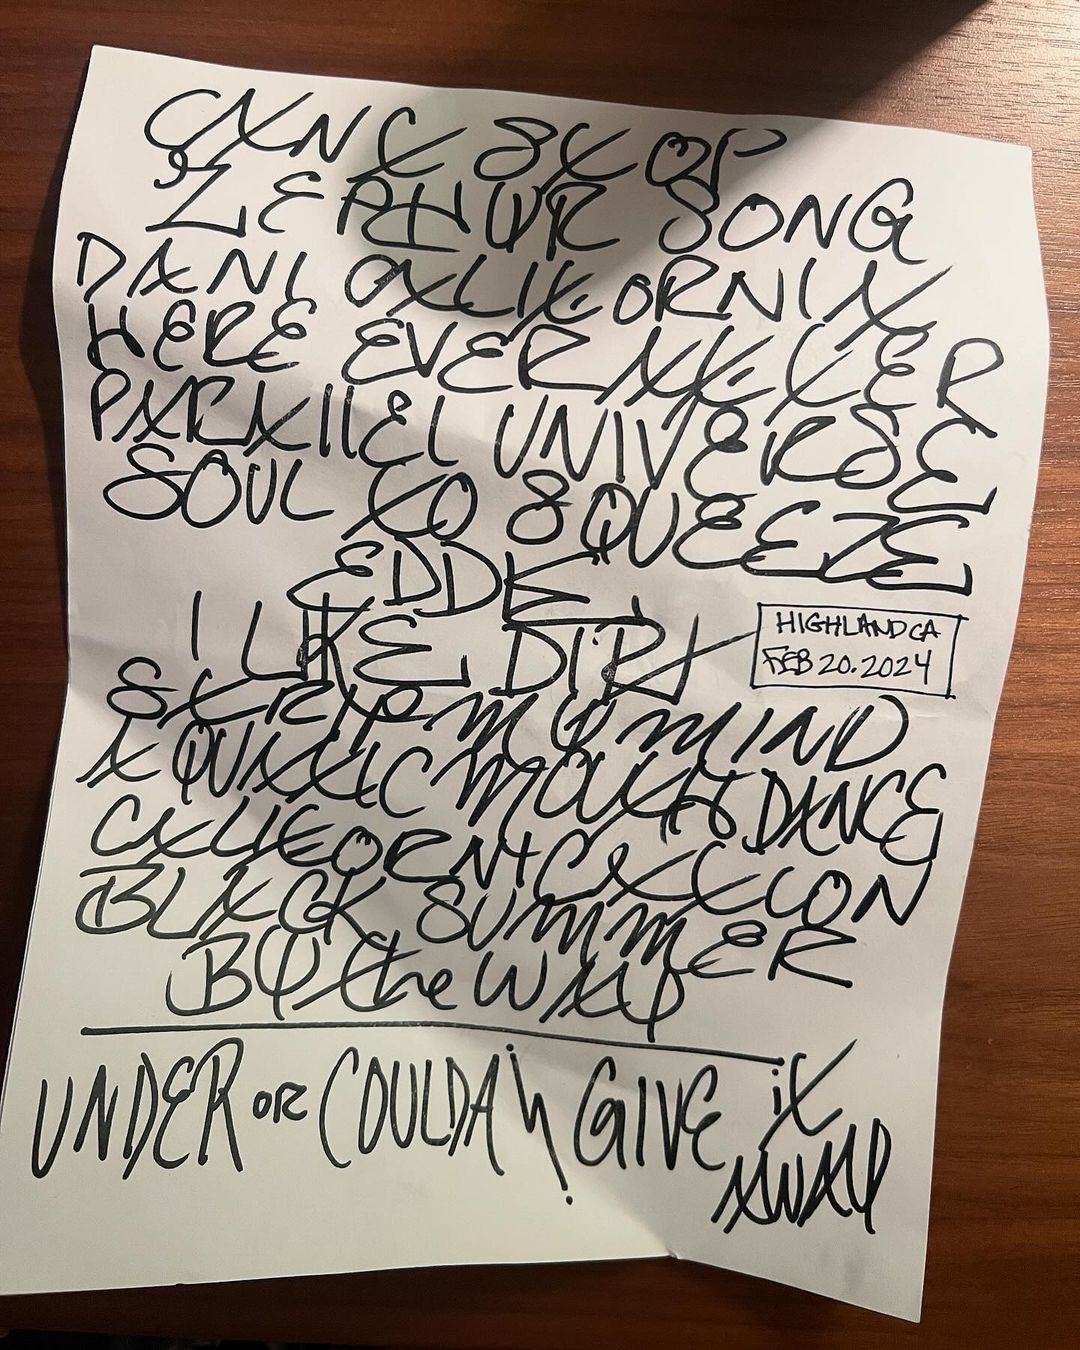 CAN'T STOP
ZEPHYR SONG
DANI CALIFORNIA
HERE EVER AFTER
PARALLEL UNIVERSE
SOUL TO SQUEEZE
EDDIE
I LIKE DIRT
HIGHLAND CA
FEB 20.2024
STRIP MY MIND
AQUATIC MOUTH DANCE
CALIFORNICATION
BLACK SUMMER
BY the WAY
UNDER OR COULDA
GIVE it
AWAY